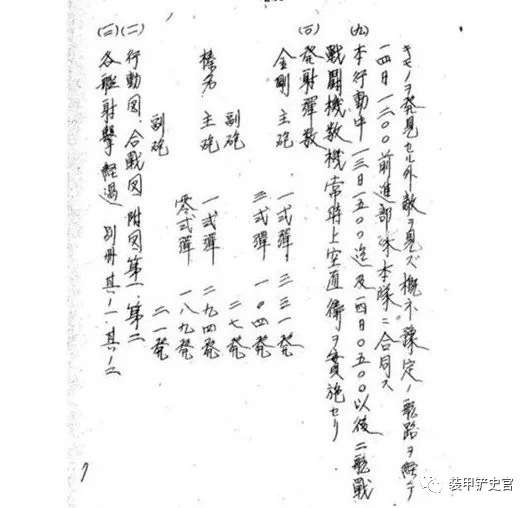 キモノヲ発見セル外敵ヲ見ズ概ネ豫定ノ航路ヲ経テ
一四日一二〇〇前進部隊本隊ニ合同ス
(九)本行動中一三日一五〇〇迄及一四日〇五〇〇以後二航戦
戰闘機数機常時上空直衛ヲ実施セリ
(十)発射彈数
金剛 主砲 一式彈 三三一発
三式彈 一〇四発
副砲 二七発
榛名 主砲 一式彈 二九四発
零式彈 一八九発
副砲 二一発
(二)行動図 合戰図 附図第一、第二
(三)各艦射撃経過 別冊其ノ一其ノ二
装甲铲史官